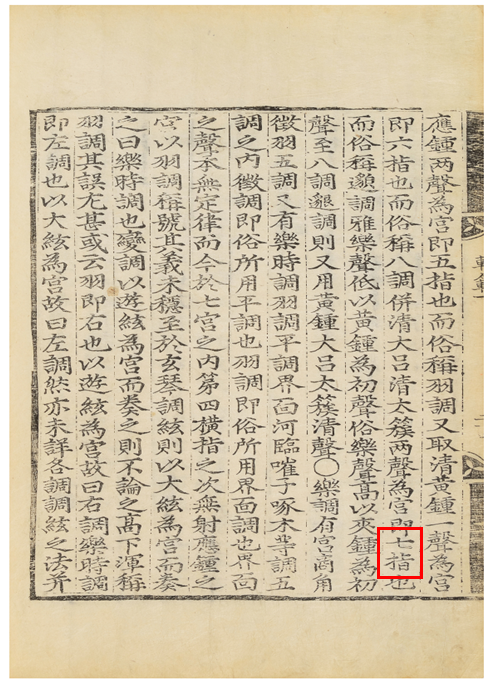 應鍾兩聲為宮即五指也而俗稱羽調又取清黃鍾一聲為宮
即六指也而俗稱八調併清大呂清太簇兩聲為宮即七指也
而俗稱邈調雅樂聲低以黃鍾為初聲俗樂聲高以夾鍾為初
聲至八調邈調則又用黃鍾大呂太簇清聲〇樂調有宮商角
徵羽五調又有樂時調羽調平調界面河臨嗺子啄木等調五
調之內徵調即俗所用平調也羽調即俗所用界面調也界面
之聲本無定律而今於七宮之內第四橫指之次無射應鍾之
宮以羽調稱號其義未穩至於玄琴調絃則以大絃為宮而奏
之曰樂時調也變調以遊絃為宮而奏之則不論之高下渾稱
羽調其誤尤甚或云羽即右也以遊絃為宮故曰右調樂時調
即左調也以大絃為宮故曰左調然亦未詳各調調絃之法并